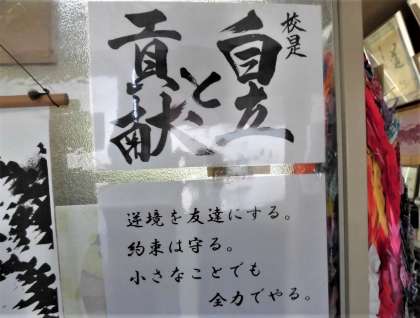 校是
自立
と
貢献
逆境を友達にする。
約束は守る。
小さなことでも
全力でやる。